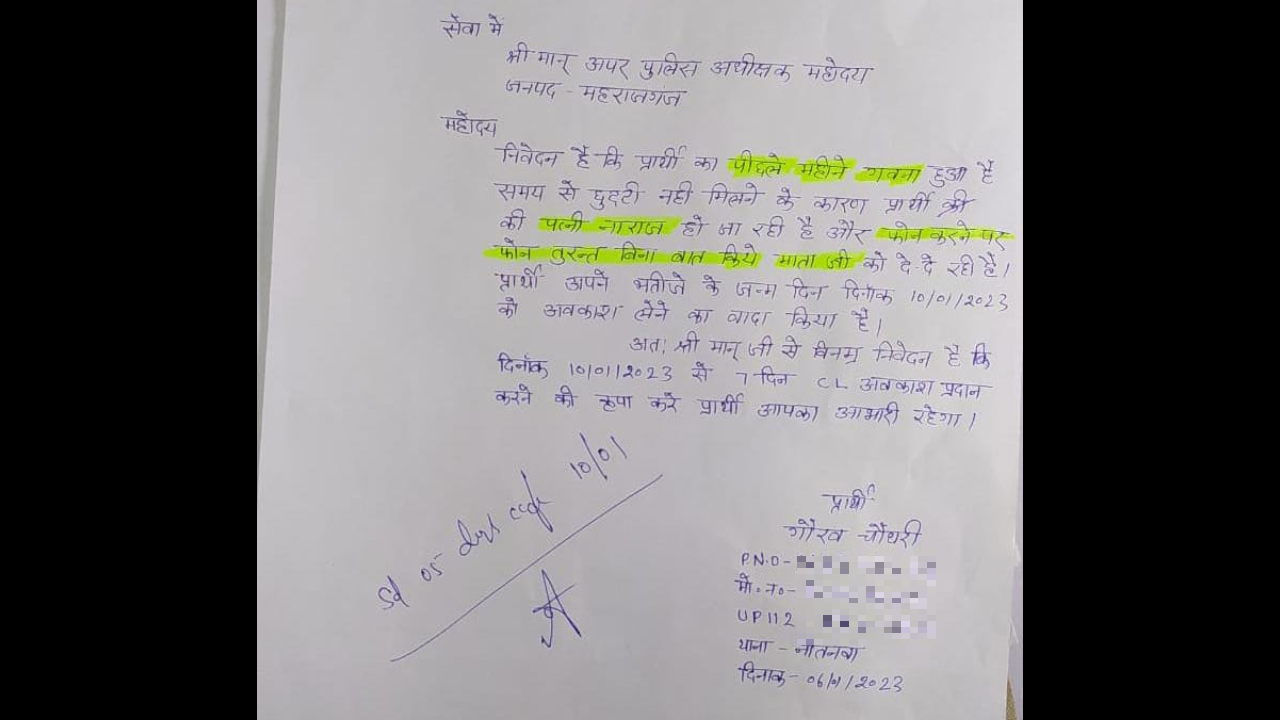 सेवा में
श्री मान् अपर पुलिस अधीक्षक महोदय
जनपद - महराजगंज
महोदय
निवेदन है कि प्रार्थी का पीछले महीने गवना हुआ है
समय से छुट्टी नही मिलने के कारण प्रार्थी श्री
की पत्नी नाराज हो जा रही है और फोन करने पर
फोन तुरन्त बिना बात किये माता जी को दे-दे रही है।
प्रार्थी अपने भतीजे के जन्म दिन दिनाँक 10/01/2023
को अवकाश लेने का वादा किया है।
अतः श्री मान् जी से विनम्र निवेदन है कि
दिनाँक 10/01/2023 से 7 दिन CL अवकाश प्रदान
करने की कृपा करे प्रार्थी आपका आभारी रहेगा।
10/01
05
प्रार्थी
गौरव चौधरी
P.N.O -
मो.न०-
UP112
थाना - नौतनवा
दिनाक - 06/01/2023